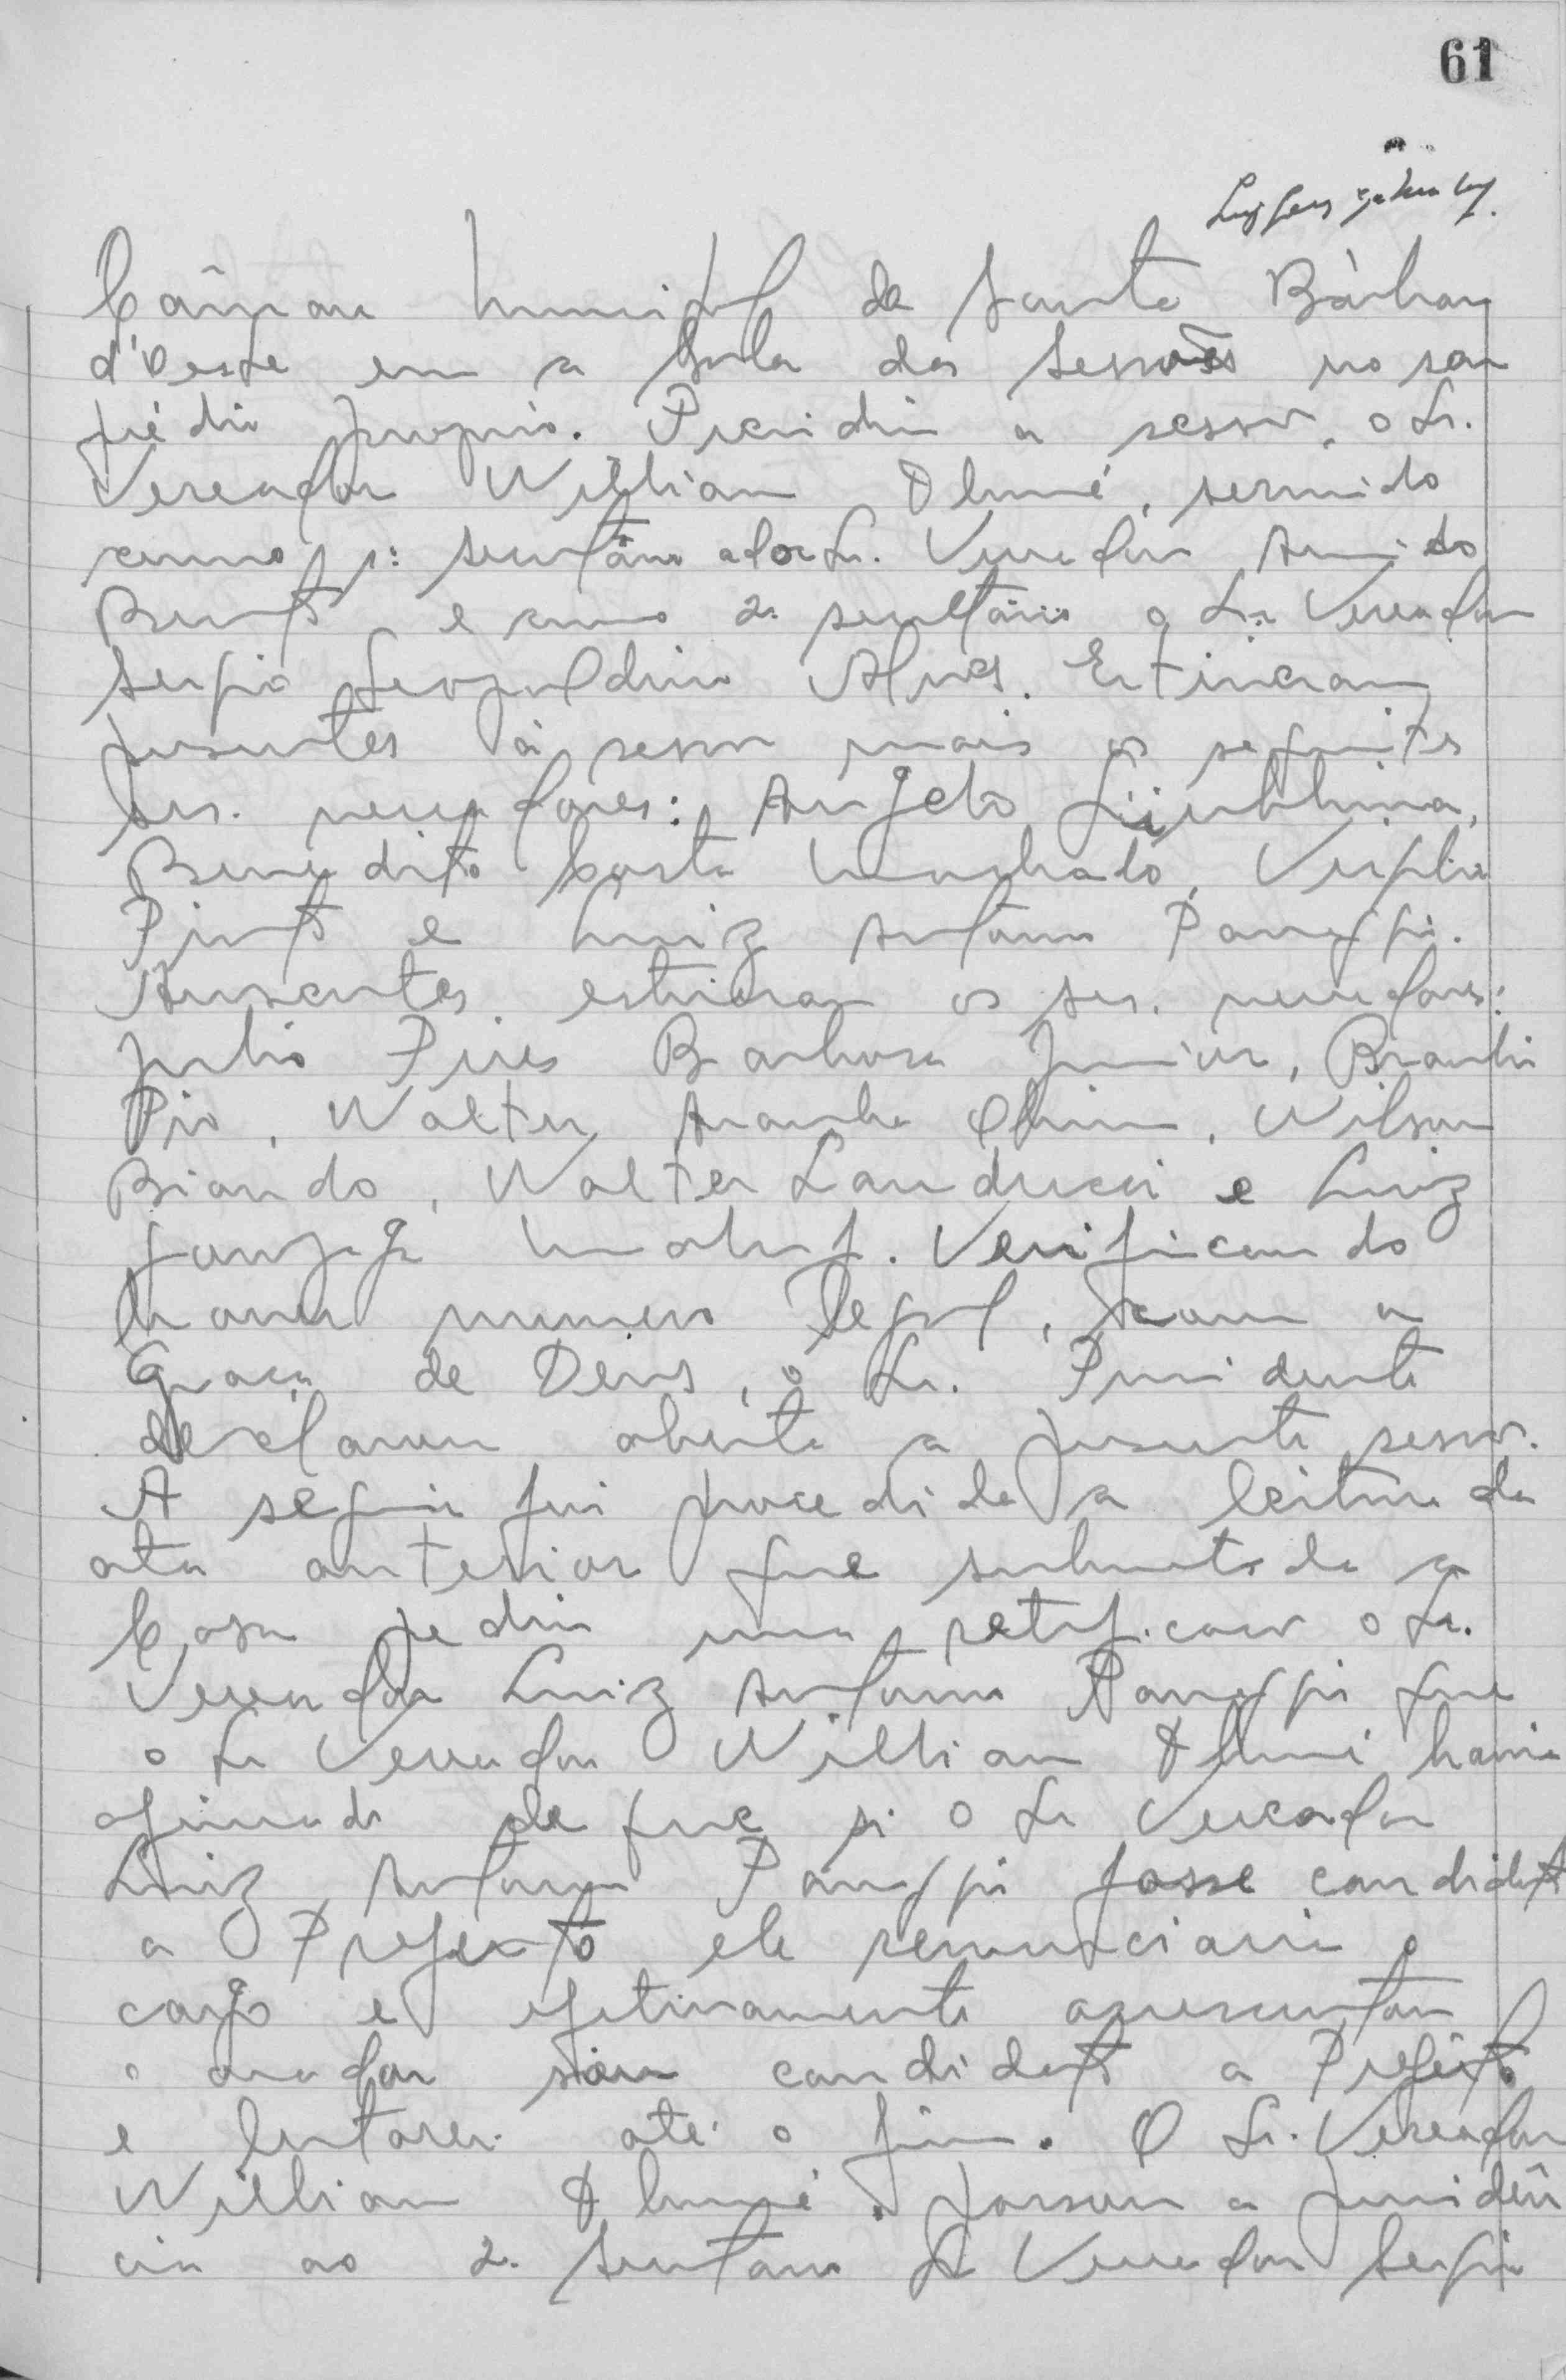 61
Câmara Municipal de Santa Bárbara
d'Oeste em a Sala das Sessões no seu
prédio proprio. Presidiu a sessão, o Sr.
Vereador Willian Alumé, servindo
como 1º secretário ad oc Sr. Vereador Armindo
Bento e como 2º secretário o Sr. Vereador
Sergio Leopoldino Alves. Estiveram
presentes à sessão mais os seguintes
Srs. vereadores: Angelo Giubbina,
Benedito Costa Machado, Virgilio
Pinto e Luiz Antonio Panaggio.
Ausentes estiveram os srs. vereadores:
Julio Pires Barbosa Junior, Braulio
Pio, Walter Aranha Olim, Wilson
Biando, Walter Landucci e Luiz
Gonzaga. Verificando
haver numero legal, com a
Graça de Deus, o Sr. Presidente
declarou aberta a presente sessão.
A seguir foi procedida a leitura da
ata anterior que submetida a
Casa pediu uma retificação o Sr.
Vereador Luiz Antonio Panaggio que
o Sr Vereador Willian Alumé havia
afirmado de que si o Sr Vereador
Luiz Antonio Panaggio fosse candidato
a Prefeito ele renunciaria o
cargo e efetivamente acrescentou
o orador siou candidato a Prefeito
e lutarei até o fim. O Sr. Vereador
Willian Alumé passou a presidên
cia ao 2º Secretario Sr Vereador Sergio